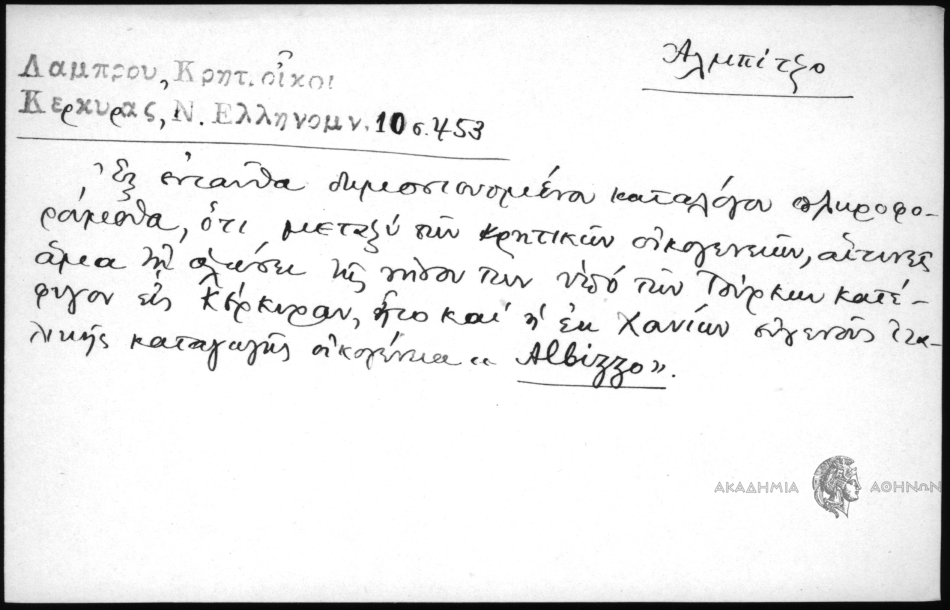 Ἀλμπίτζο
Λαμπρου, Κρητ. οἶκοι
Κερκυρας, Ν. Ελληνομν. 10 σ. 453
Ἐξ ἐνταῦθα δημοσιευομένου καταλόγου πληροφο-
ρούμεθα, ὅτι μεταξὺ τῶν Κρητικῶν οἰκογενειῶν, αἵτινες
ἅμα τῇ ἁλώσει τῆς νήσου των ὑπὸ τῶν Τούρκων κατέ-
φυγον εἰς Κέρκυραν, ἦτο καὶ ἡ ἐκ Χανίων εὐγενοῦς ἰτα-
λικῆς καταγωγῆς οἰκογένεια « Albizzo».
ΑΚΑΔΗΜΙΑ ΑΘΗΝΩΝ